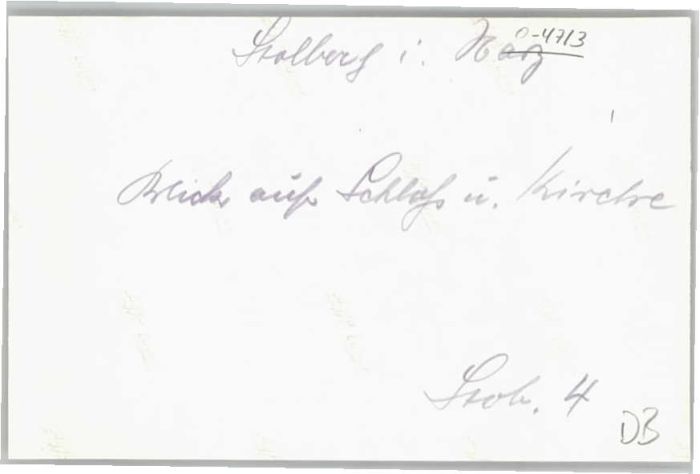 Stolberg i. Harz
O-4713
Blick auf Schloß u. Kirche
Stob. 4
DB